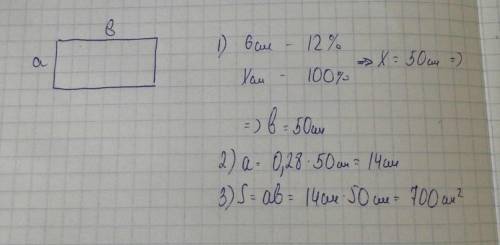 в
a
1) 6см – 12%
Xсм – 100% => X = 50см =>
=> b = 50см
2) a = 0,28 · 50см = 14см
3) S = ab = 14см · 50см = 700см²